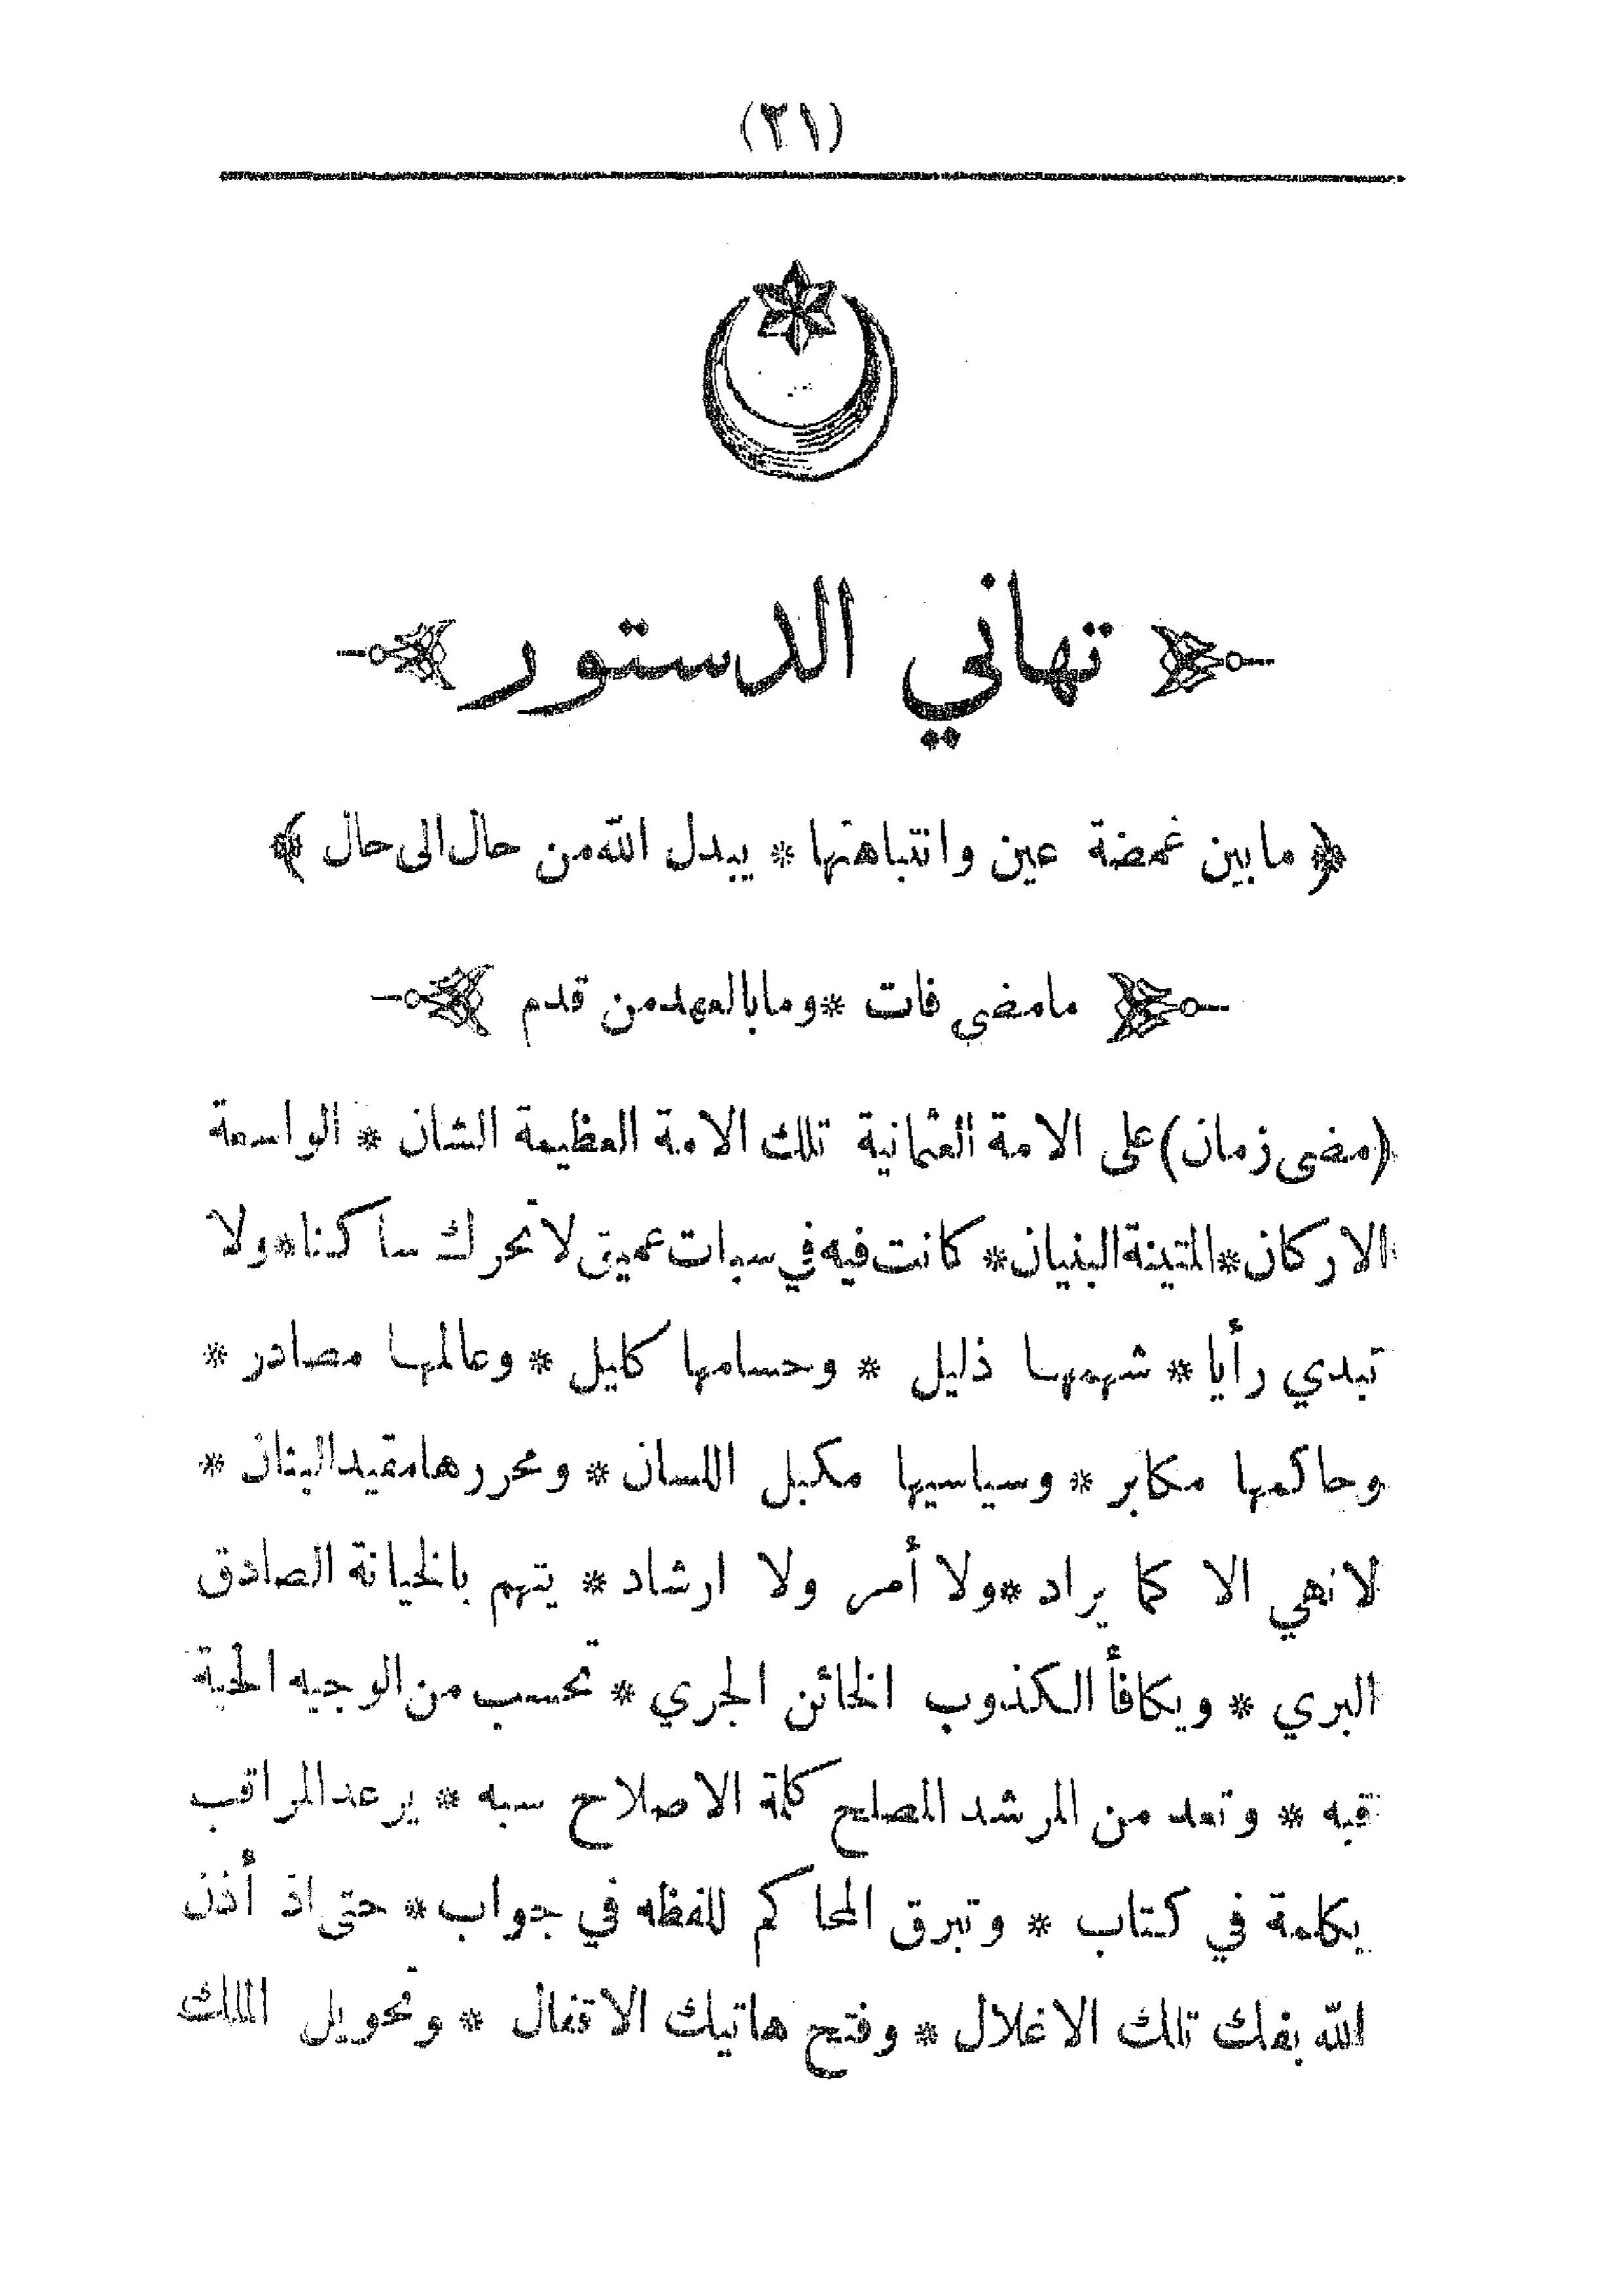 (٢١)
تهاني الدستور
﴿ ما بين غمضة عين وانتباهتها * يبدل الله من حال الى حال ﴾
مامضى فات * وما بالعهد من قدم
(مضى زمان) على الامة العثمانية تلك الامة العظيمة الشان * الواسعة
الاركان * المتينة البنيان * كانت فيه في سبات عميق لا تحرك ساكنا * ولا
تبدي رأيا * شهمها ذليل * وحسامها كليل * وعالمها مصادر *
وحاكمها مكابر * وسياسيها مكبل اللسان * ومحررها مقيد البنان *
لا نهي الا كما يراد * ولا أمر ولا ارشاد * يتهم بالخيانة الصادق
البري * ويكافأ الكذوب الخائن الجري * تحسب من الوجيه الحبة
قبه * وتعد من المرشد المصلح كلمة الاصلاح سبه * يرعد المراقب
بكلمة في كتاب * وتبرق المحاكم للفظه في جواب * حتى اذ أذن
الله بفك تلك الاغلال * وفتح هاتيك الاقفال * وتحويل الملك